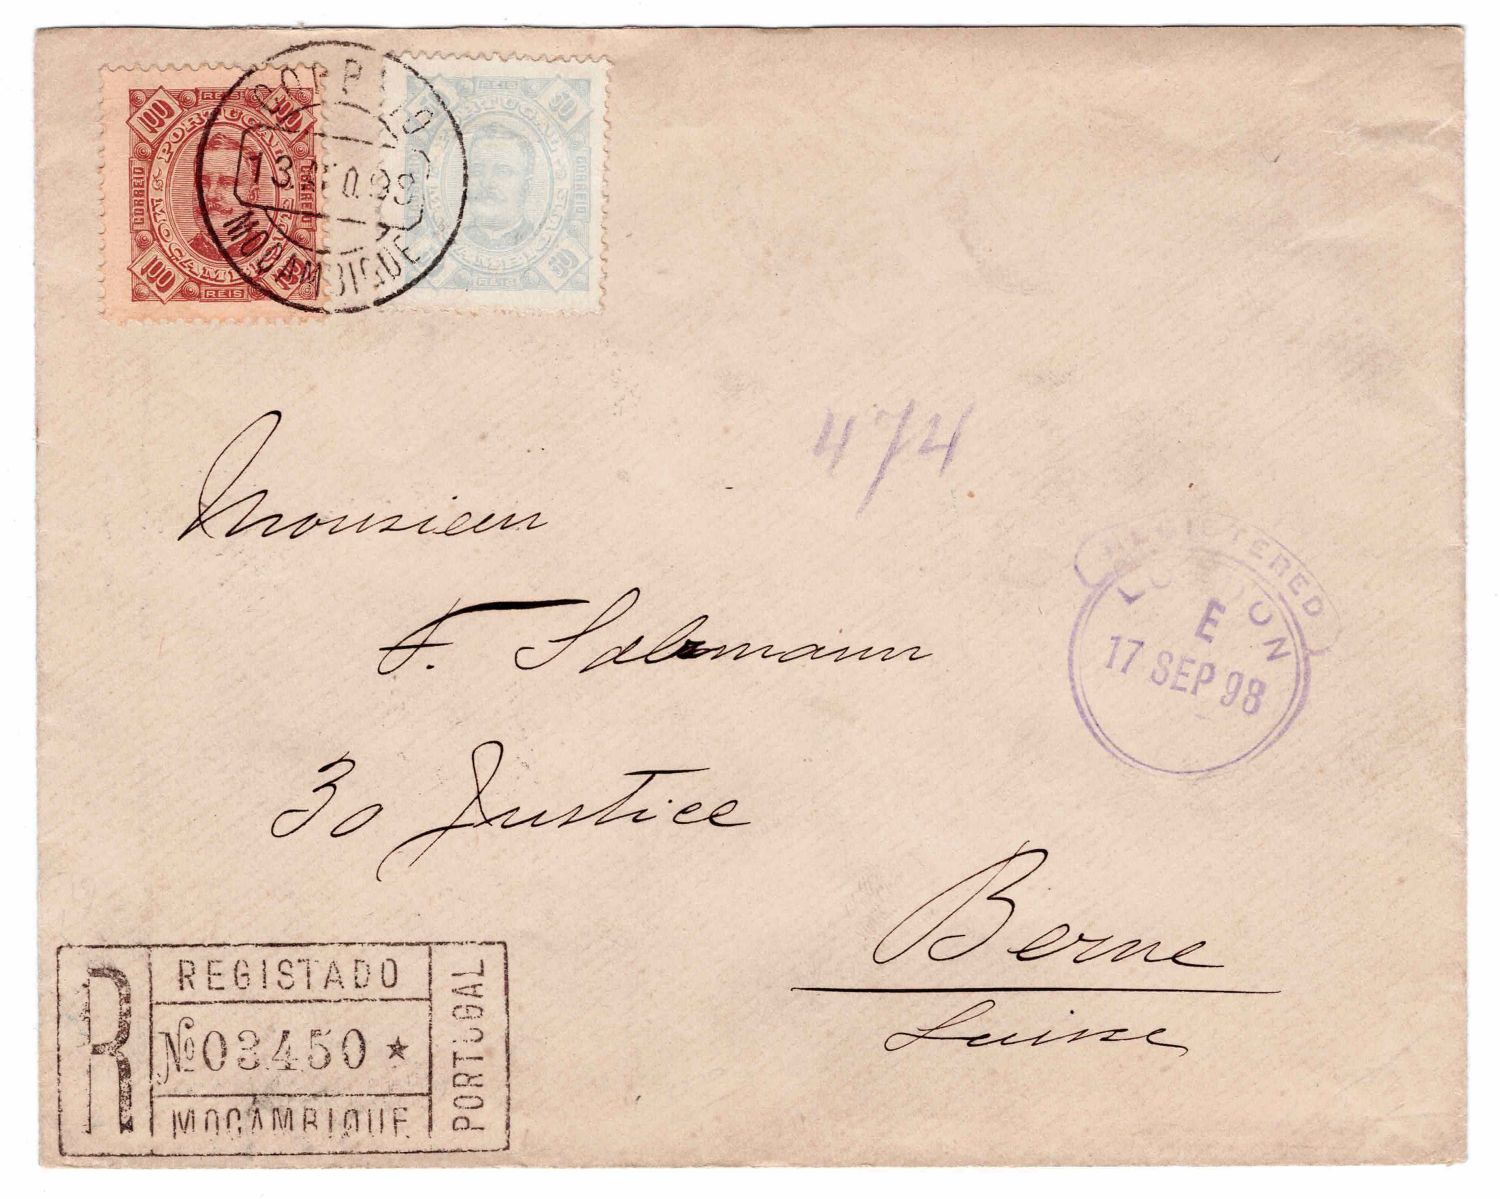 100 REIS 100
PORTUGAL
CORREIO CORREIO
MOÇAMBIQUE
100 REIS
REIS 50
PORTUGAL
CORREIO
50
CORREIO
13
MOÇAMBIQUE
474
Monsieur
F. Salzmann
30 Justice
Berne
Suisse
REGISTERED
LONDON
E
17 SEP 98
R
REGISTADO
№ 03450 ★
MOÇAMBIQUE
PORTUGAL